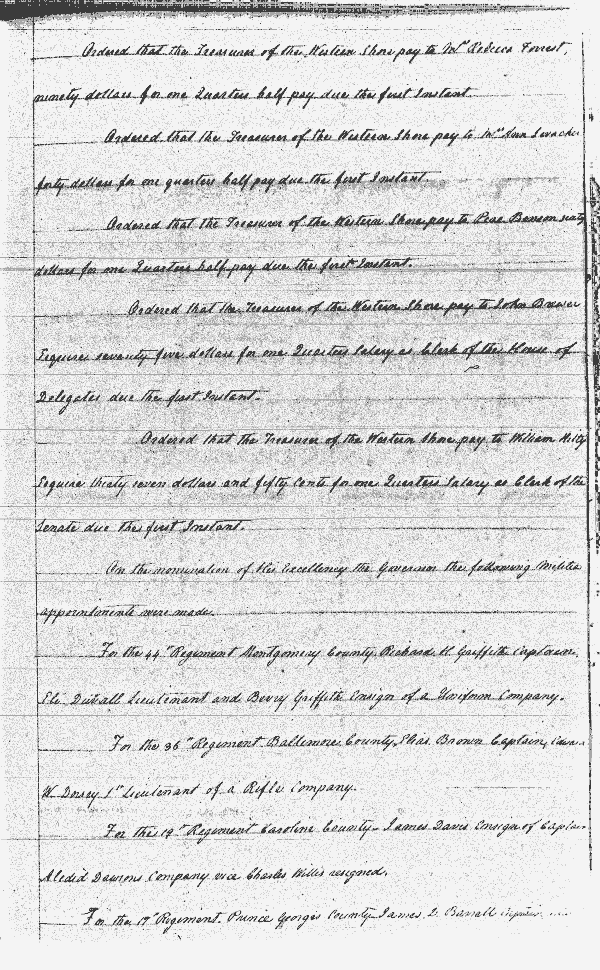 Ordered that the Treasurer of the Western Shore pay to Mrs Rebecca Forrest,
ninety dollars for one Quarters half pay due the first Instant.
Ordered that the Treasurer of the Western Shore pay to Mrs Ann
forty dollars for one quarters half pay due the first Instant.
Ordered that the Treasurer of the Western Shore pay to Benson sixty
dollars for one Quarters half pay due the first Instant.
Ordered that the Treasurer of the Western Shore pay to John Brewer
Esquire seventy five dollars for one Quarters Salary as Clerk of the House of
Delegates due the first Instant.
Ordered that the Treasurer of the Western Shore pay to William Kilty
Esquire thirty seven dollars and fifty Cents for one Quarters Salary as Clerk of the
Senate due the first Instant.
On the nomination of His Excellency the Governor the following Militia
appointments were made.
For the 44th Regiment Montgomery County, Richard H. Griffith Captain,
Eli Duvall Lieutenant and Berry Griffith Ensign of a Uniform Company.
For the 36th Regiment Baltimore County, Elias Brown Captain,
W Dorsey 1st Lieutenant of a Rifle Company.
For the 19th Regiment Caroline County, James Davis Ensign of Captain
Dawsons Company vice Charles Willis resigned.
For the 17th Regiment. Prince Georges County James